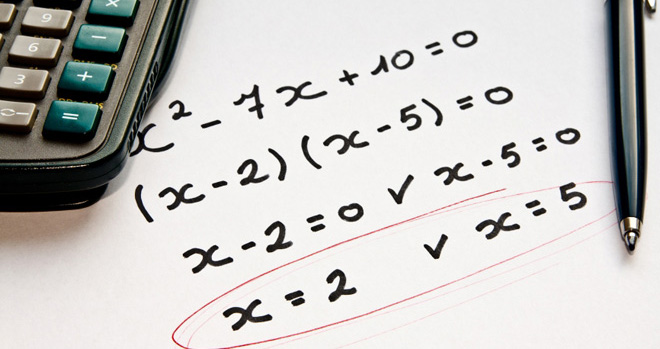 x² - 7x + 10 = 0
(x - 2) (x - 5) = 0
x - 2 = 0 ∨ x - 5 = 0
x = 2 ∨ x = 5
×
9
−
6
+
3
=